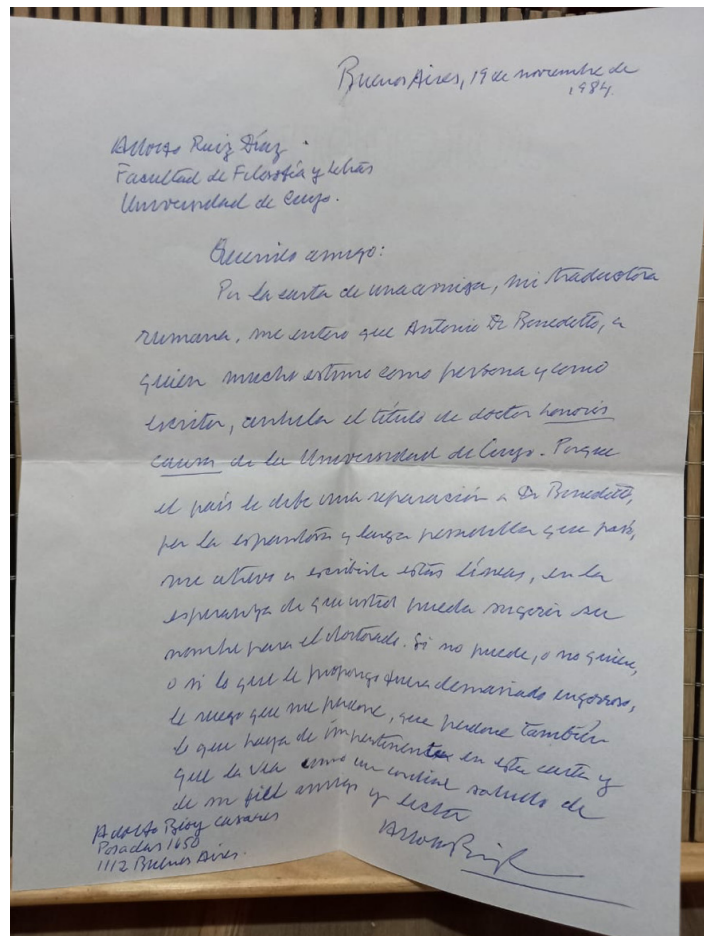 Buenos Aires, 19 de noviembre de
1984.
Adolfo Ruiz Díaz
Facultad de Filosofía y Letras
Universidad de Cuyo.
Querido amigo:
Por la carta de una amiga, mi traductora
rumana, me entero que Antonio Di Benedetto, a
quien mucho estimo como persona y como
escritor, anhela el título de doctor honoris
causa de la Universidad de Cuyo. Porque
el país le debe una reparación a Di Benedetto,
por la espantosa y larga pesadilla que pasó,
me atrevo a escribirle estas líneas, en la
esperanza de que usted pueda sugerir su
nombre para el doctorado. Si no puede, o no quiere,
o si lo que le propongo fuera demasiado engorroso,
le ruego que me perdone, que perdone también
lo que haya de impertinente en esta carta y
que la vea como un cordial saludo de
de su fiel amigo y lector
Adolfo Bioy Casares
Posadas 1650
1112 Buenos Aires.